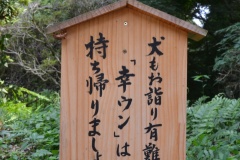 犬もお詣り有難
「幸ウン」は
持ち帰りまし